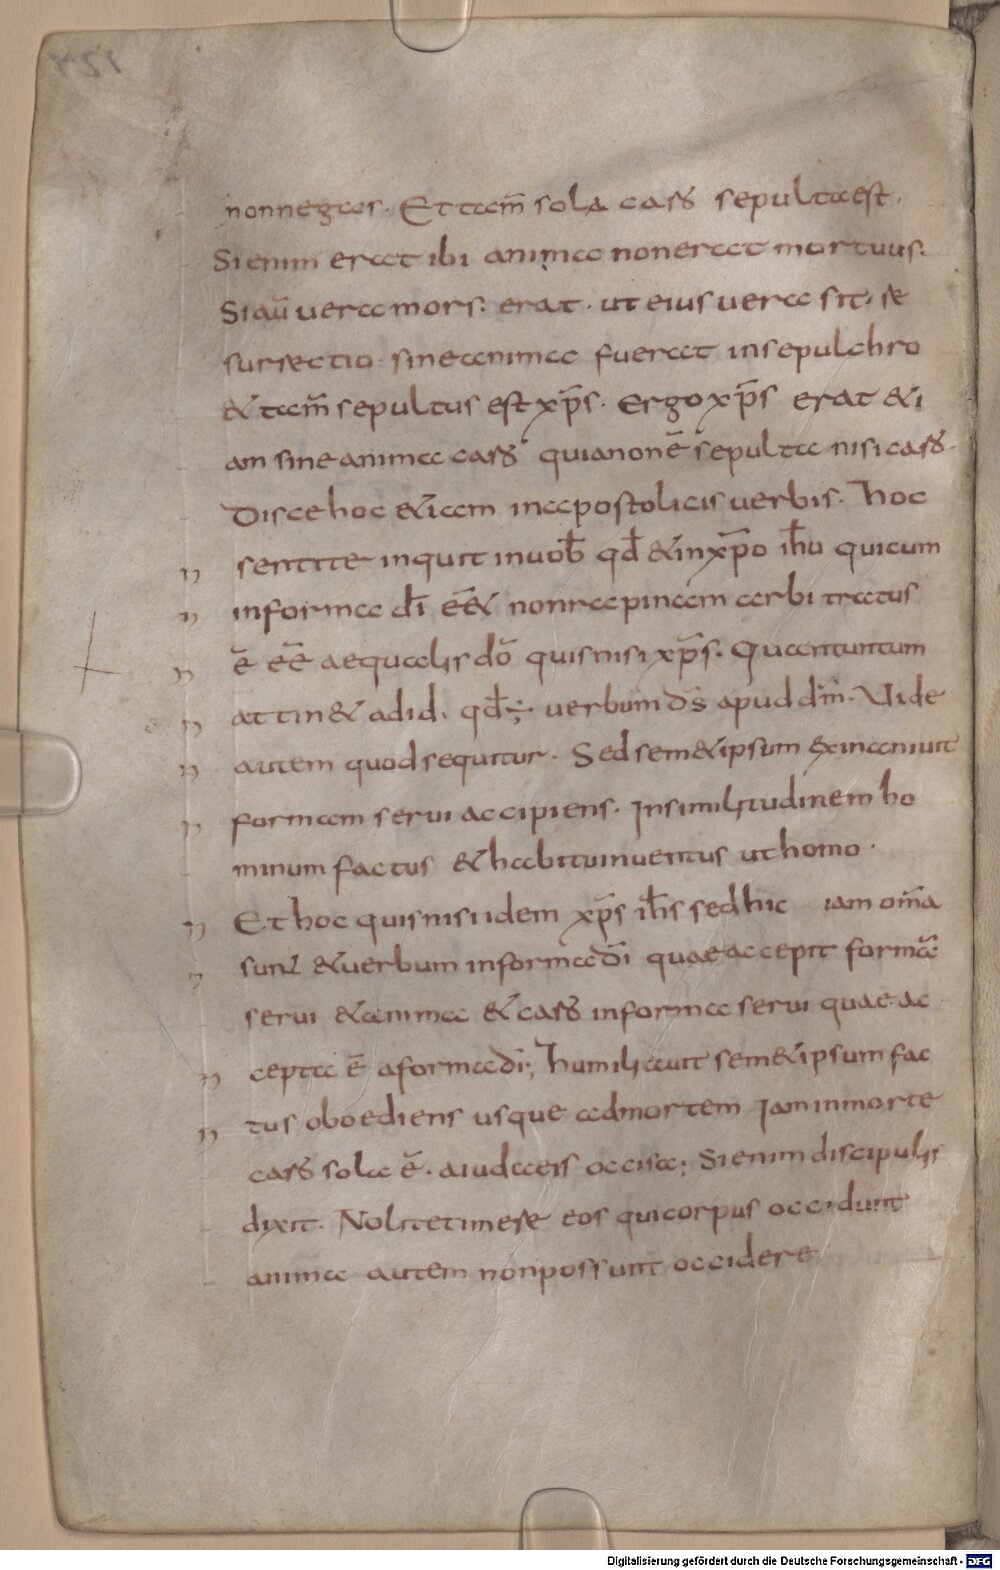 non negas. Et tam̄ sola caro sepulta est.
Si enim erat ibi anima non erat mortuus.
Si aū vera mors. erat. ut eius vera sit. re
surrectio. sine anima fuerat in sepulchro
& tam̄ sepultus est xp̄s. Ergo xp̄s erat & i
am sine anima caro quia non ē sepulta nisi caro.
Disce hoc &iam in apostolicis verbis. Hoc
sentite inquit in uob̄ qd̄ & in xp̄o ih̄u qui cum
in forma dī eē& non rapinam arbitratus
ē eē aequalis dō quis nisi xp̄s. Quantum tum
attin& ad id. qd̄ ÷ verbum ds̄ apud dm̄. Vide
autem quod sequitur. Sed sem&ipsum exinaniuit
formam serui accipiens. In similitudinem ho
minum factus & habitu inuentus ut homo.
Et hoc quis nisi idem xp̄s ih̄s sed hic iam om̄a
sunt & verbum in forma dī quae accepit formā
serui & anima & caro in forma serui quae ac
cepta ē a forma dī; Humiliauit sem&ipsum fac
tus oboediens usque ad mortem Iam in morte
caro sola ē. a iudaeis occisa; Si enim discipulis
dixit. Nolite timere eos qui corpus occidunt
anima autem non possunt occidere
Digitalisierung gefördert durch die Deutsche Forschungsgemeinschaft - DFG